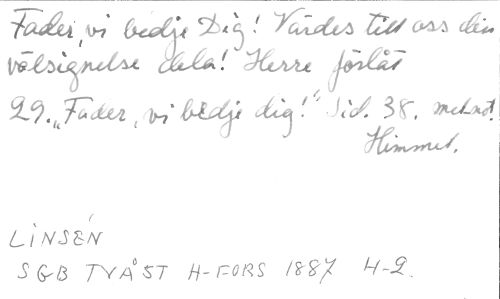 Fader, vi bedje Dig! Värdes till oss din
välsignelse dela! Herre förlåt
29. „Fader, vi bedje dig!" Sid. 38. mel.not.
Himmel.
LINSÉN
SGB TVÅST H-FORS 1887 4-2.